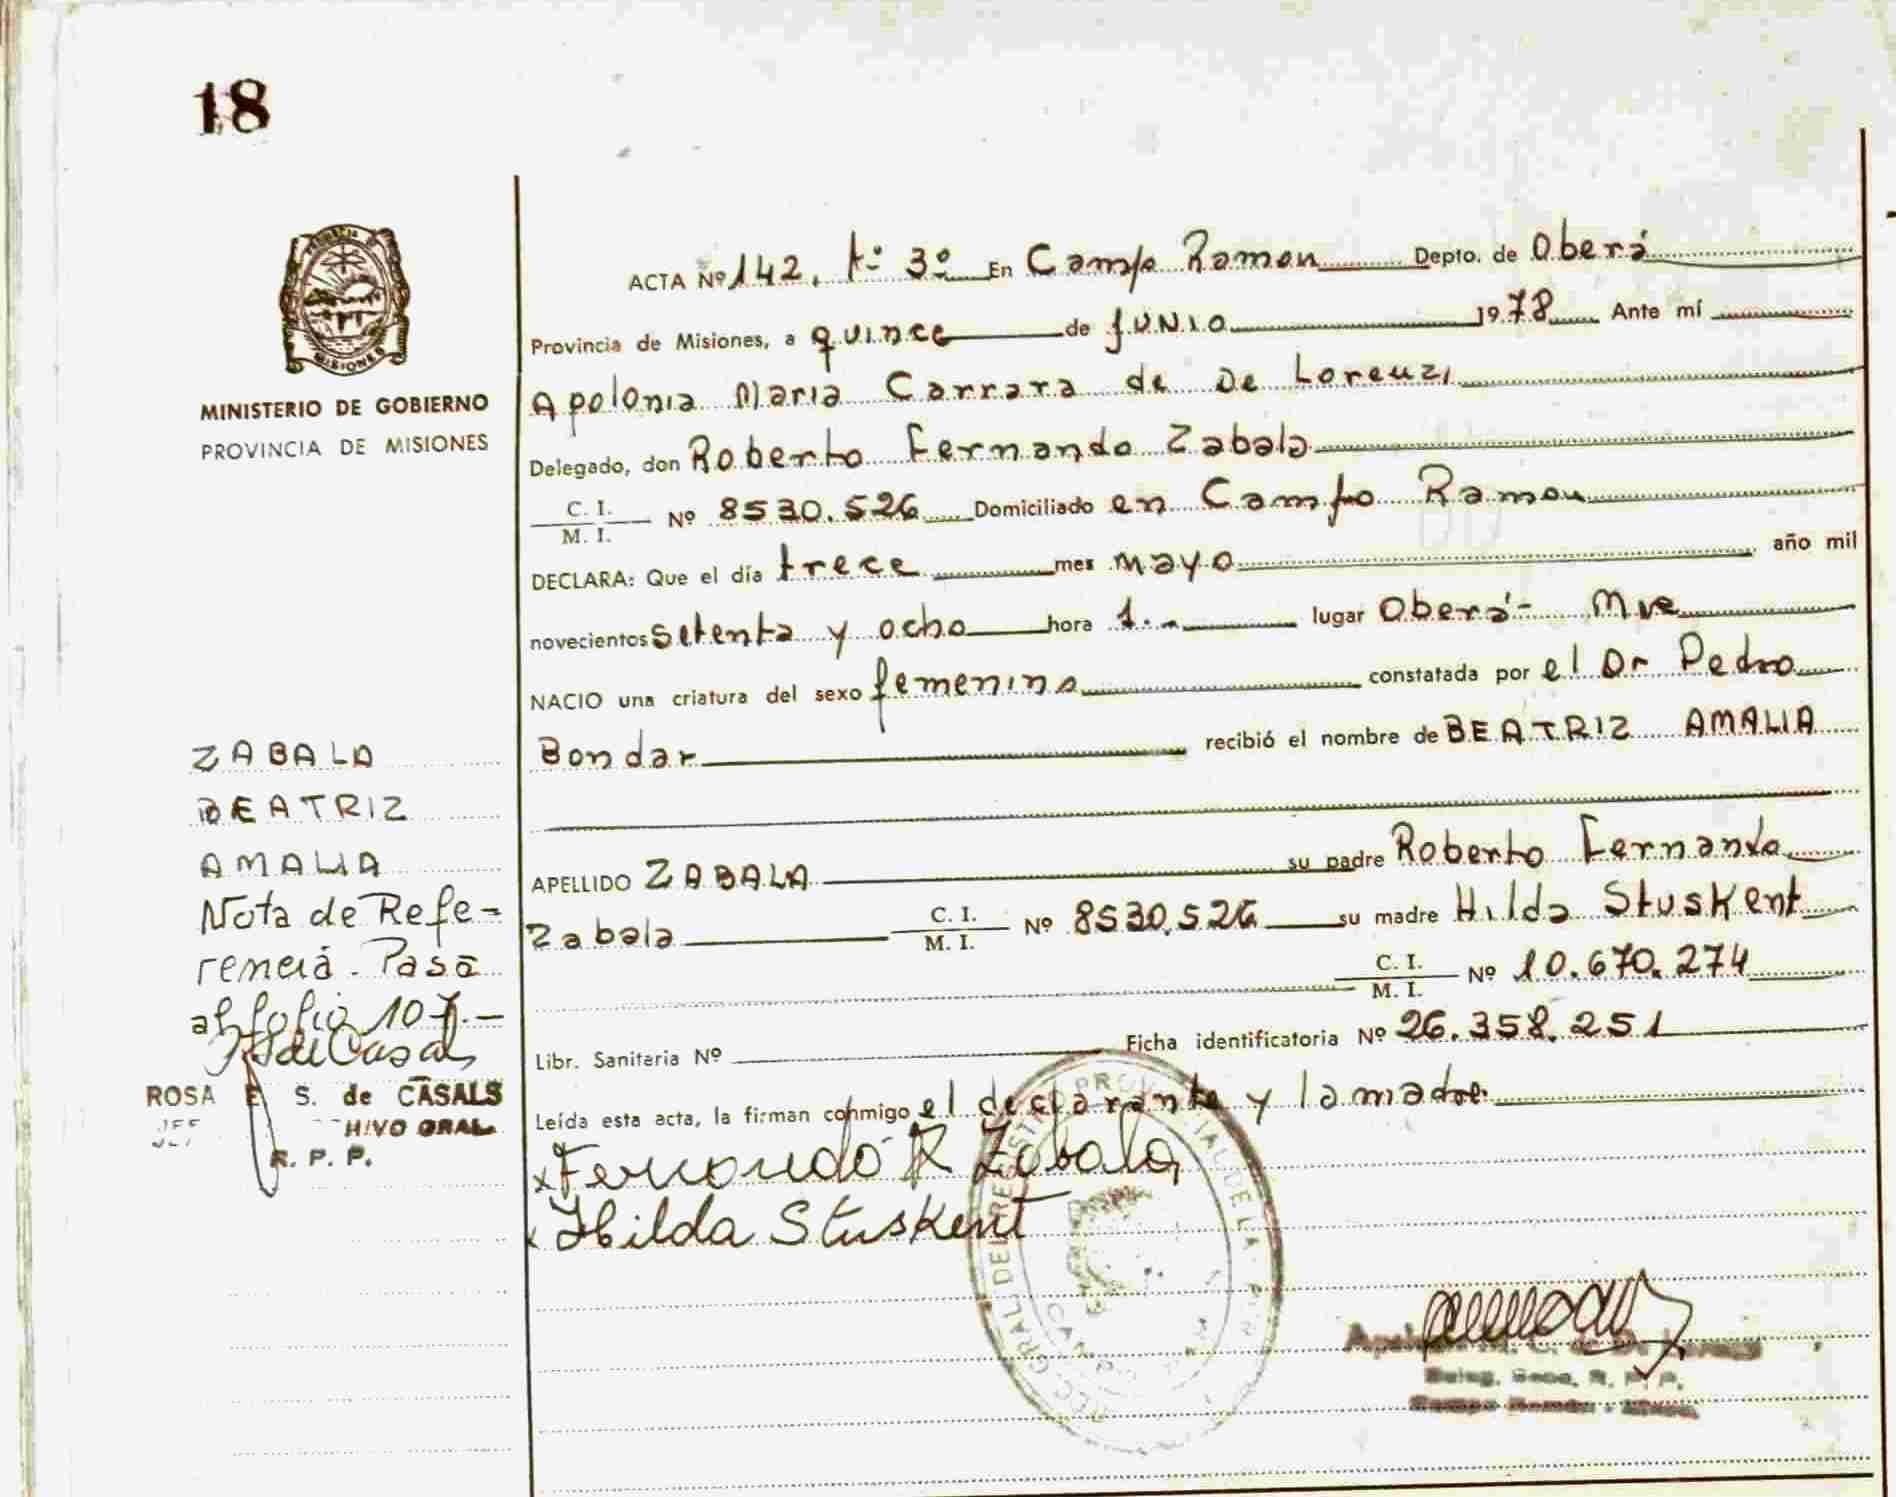 18
MISIONES
MINISTERIO DE GOBIERNO
PROVINCIA DE MISIONES
ZABALA
BEATRIZ
AMALIA
Nota de Refe-
rencia. Pasa
al folio 107.-
ROSA E. S. de CASALS
R. P. P.
ACTA Nº 142. tº 3º En Campo Ramon Depto. de Oberá
Provincia de Misiones, a quince de JUNIO 1978 Ante mí
Apolonia Maria Carrara de De Lorenzi
Delegado, don Roberto Fernando Zabala
C. I.
M. I. Nº 8530.526 Domiciliado en Campo Ramon
DECLARA: Que el día trece mes mayo año mil
novecientos setenta y ocho hora 1.- lugar Oberá-
NACIO una criatura del sexo femenino constatada por el Dr Pedro
Bondar recibió el nombre de BEATRIZ AMALIA
APELLIDO ZABALA su padre Roberto Fernando
Zabala C. I.
M. I. Nº 8530.526 su madre Hilda Stuskent
C. I.
M. I. Nº 10.670.274
Libr. Sanitaria Nº Ficha identificatoria Nº 26.358.251
Leída esta acta, la firman conmigo el declarante y la madre
x Fernando R Zabala
x Hilda Stuskent